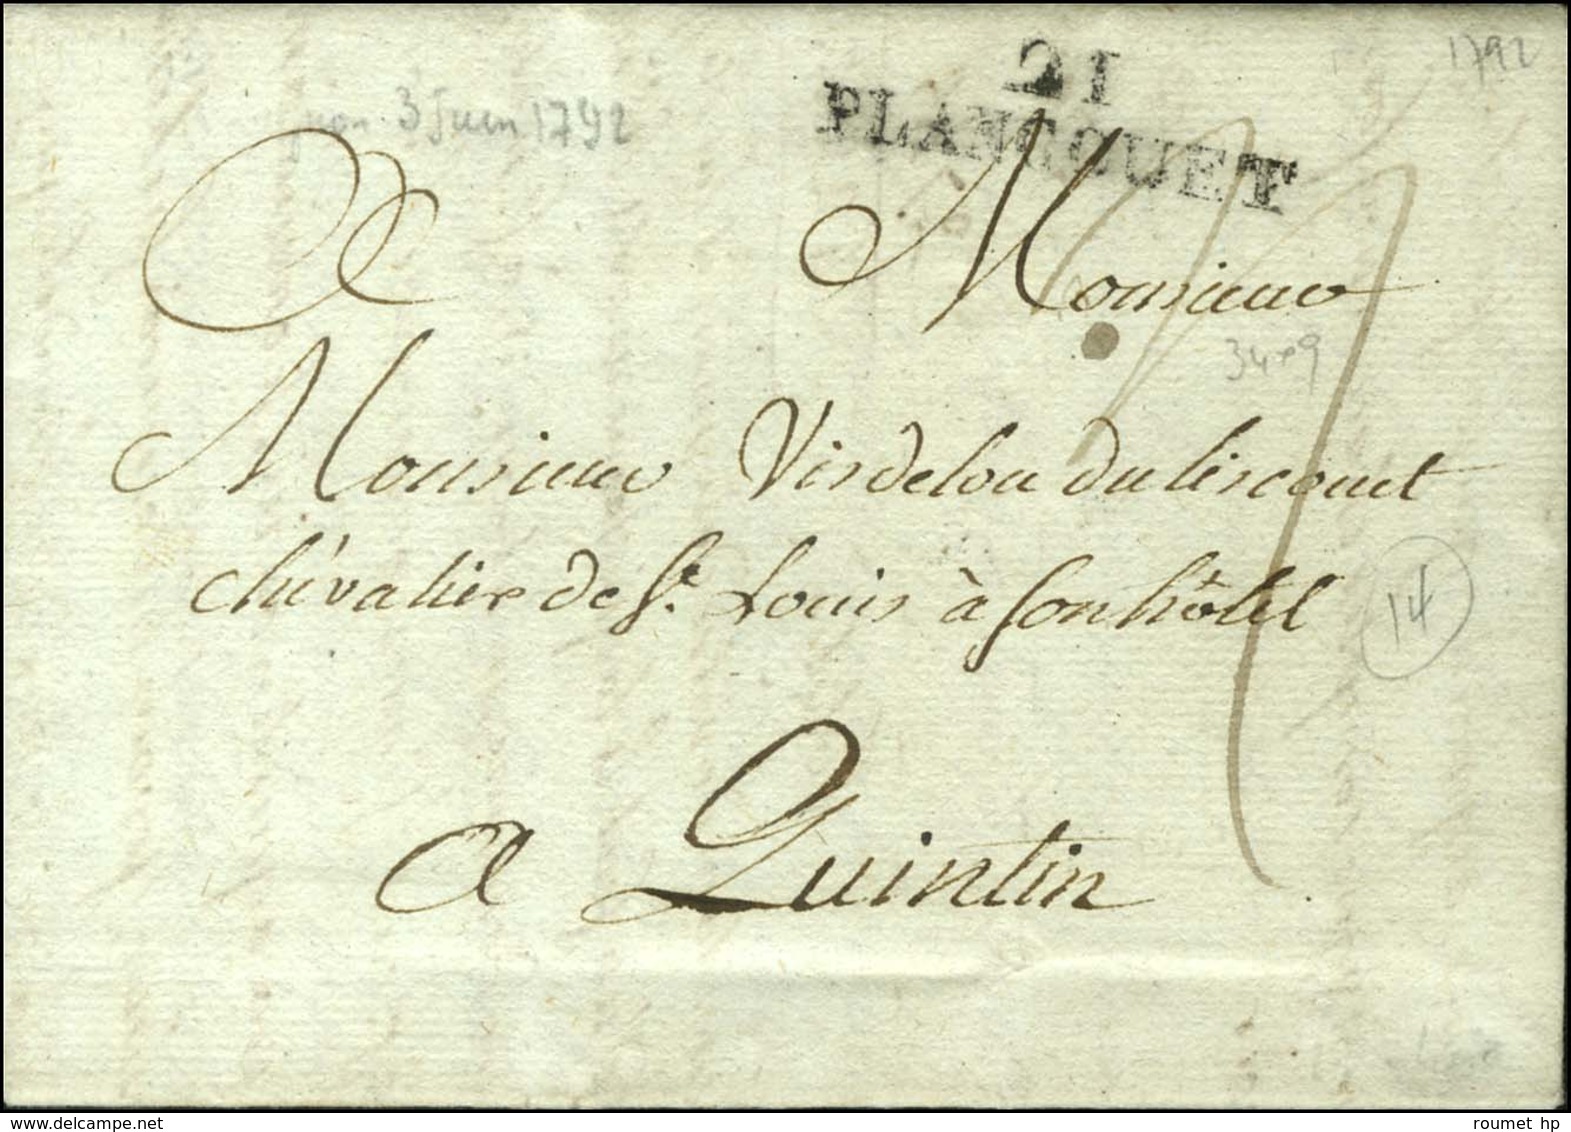 1792
3 Juin 1792
21
PLANCOUET
A Monsieur
34 x 9
Monsieur Visdelou du liscouet
chévalier de St. Louis à son hôtel
14
a Quintin
delcampe.net
roumet hp